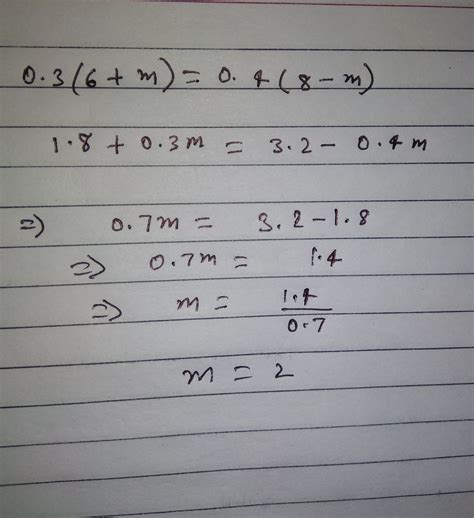 0.3(6+m)=0.4(8-m)
1.8+0.3m = 3.2-0.4m
=) 0.7m = 3.2-1.8
=> 0.7m = 1.4
=> m = 1.4/0.7
m = 2